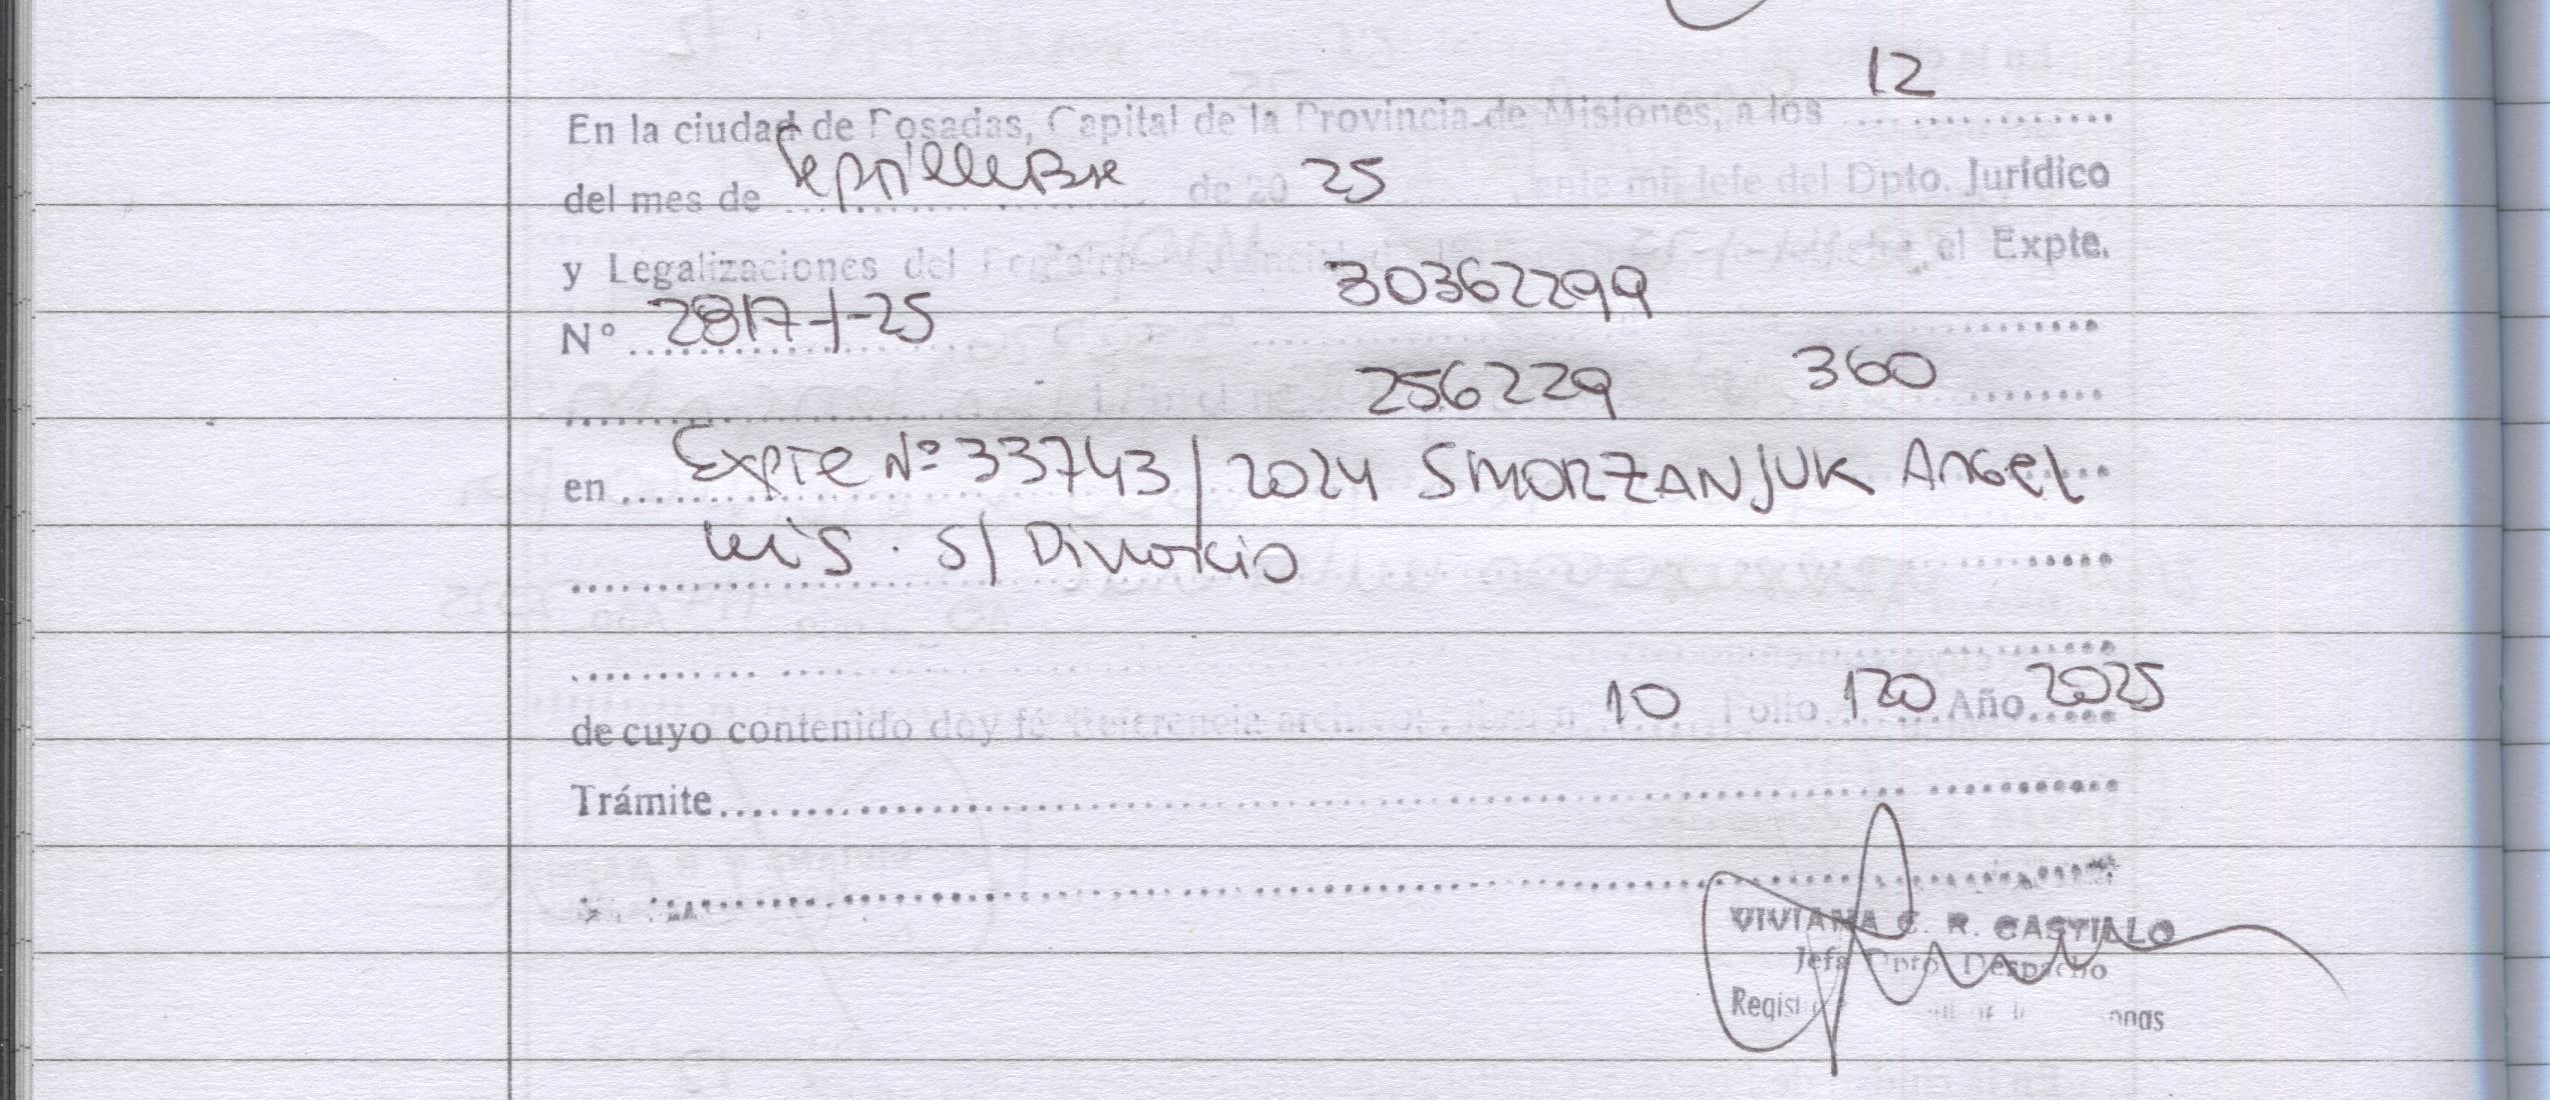 12
En la ciudad de Posadas, Capital de la Provincia de Misiones, a los ..............
del mes de Septiembre de 20 25 ante mi, Jefe del Dpto. Jurídico
y Legalizaciones del el Expte.
30362299
Nº 2817-I-25
256229 360
en Expte Nº 33743/2024 SMORZANJUK Angel
Luis. S/ Divorcio
de cuyo contenido doy fé. Referencia 10 Folio 120 Año 2025
Trámite
VIVIANA C. R. CASTILLO
Jefa Dpto. Despacho